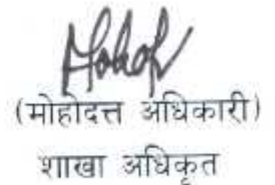 (मोहोदत्त अधिकारी)
शाखा अधिकृत